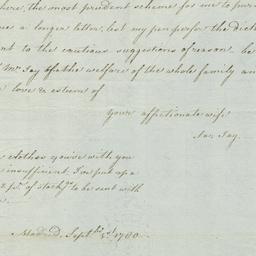 here, the most prudent scheme for me to pursu
a longer letter, but my pen prefer the dicta
nt to the cautious suggestions of reason. be
Mr. Jay & the welfare of the whole family an
love & esteem of
Your affectionate wife
Sa. Jay.
clothes you've with you
insufficient. I've put up a
2 pr. of stock.gs to be sent with
Madrid, Sept. 1780